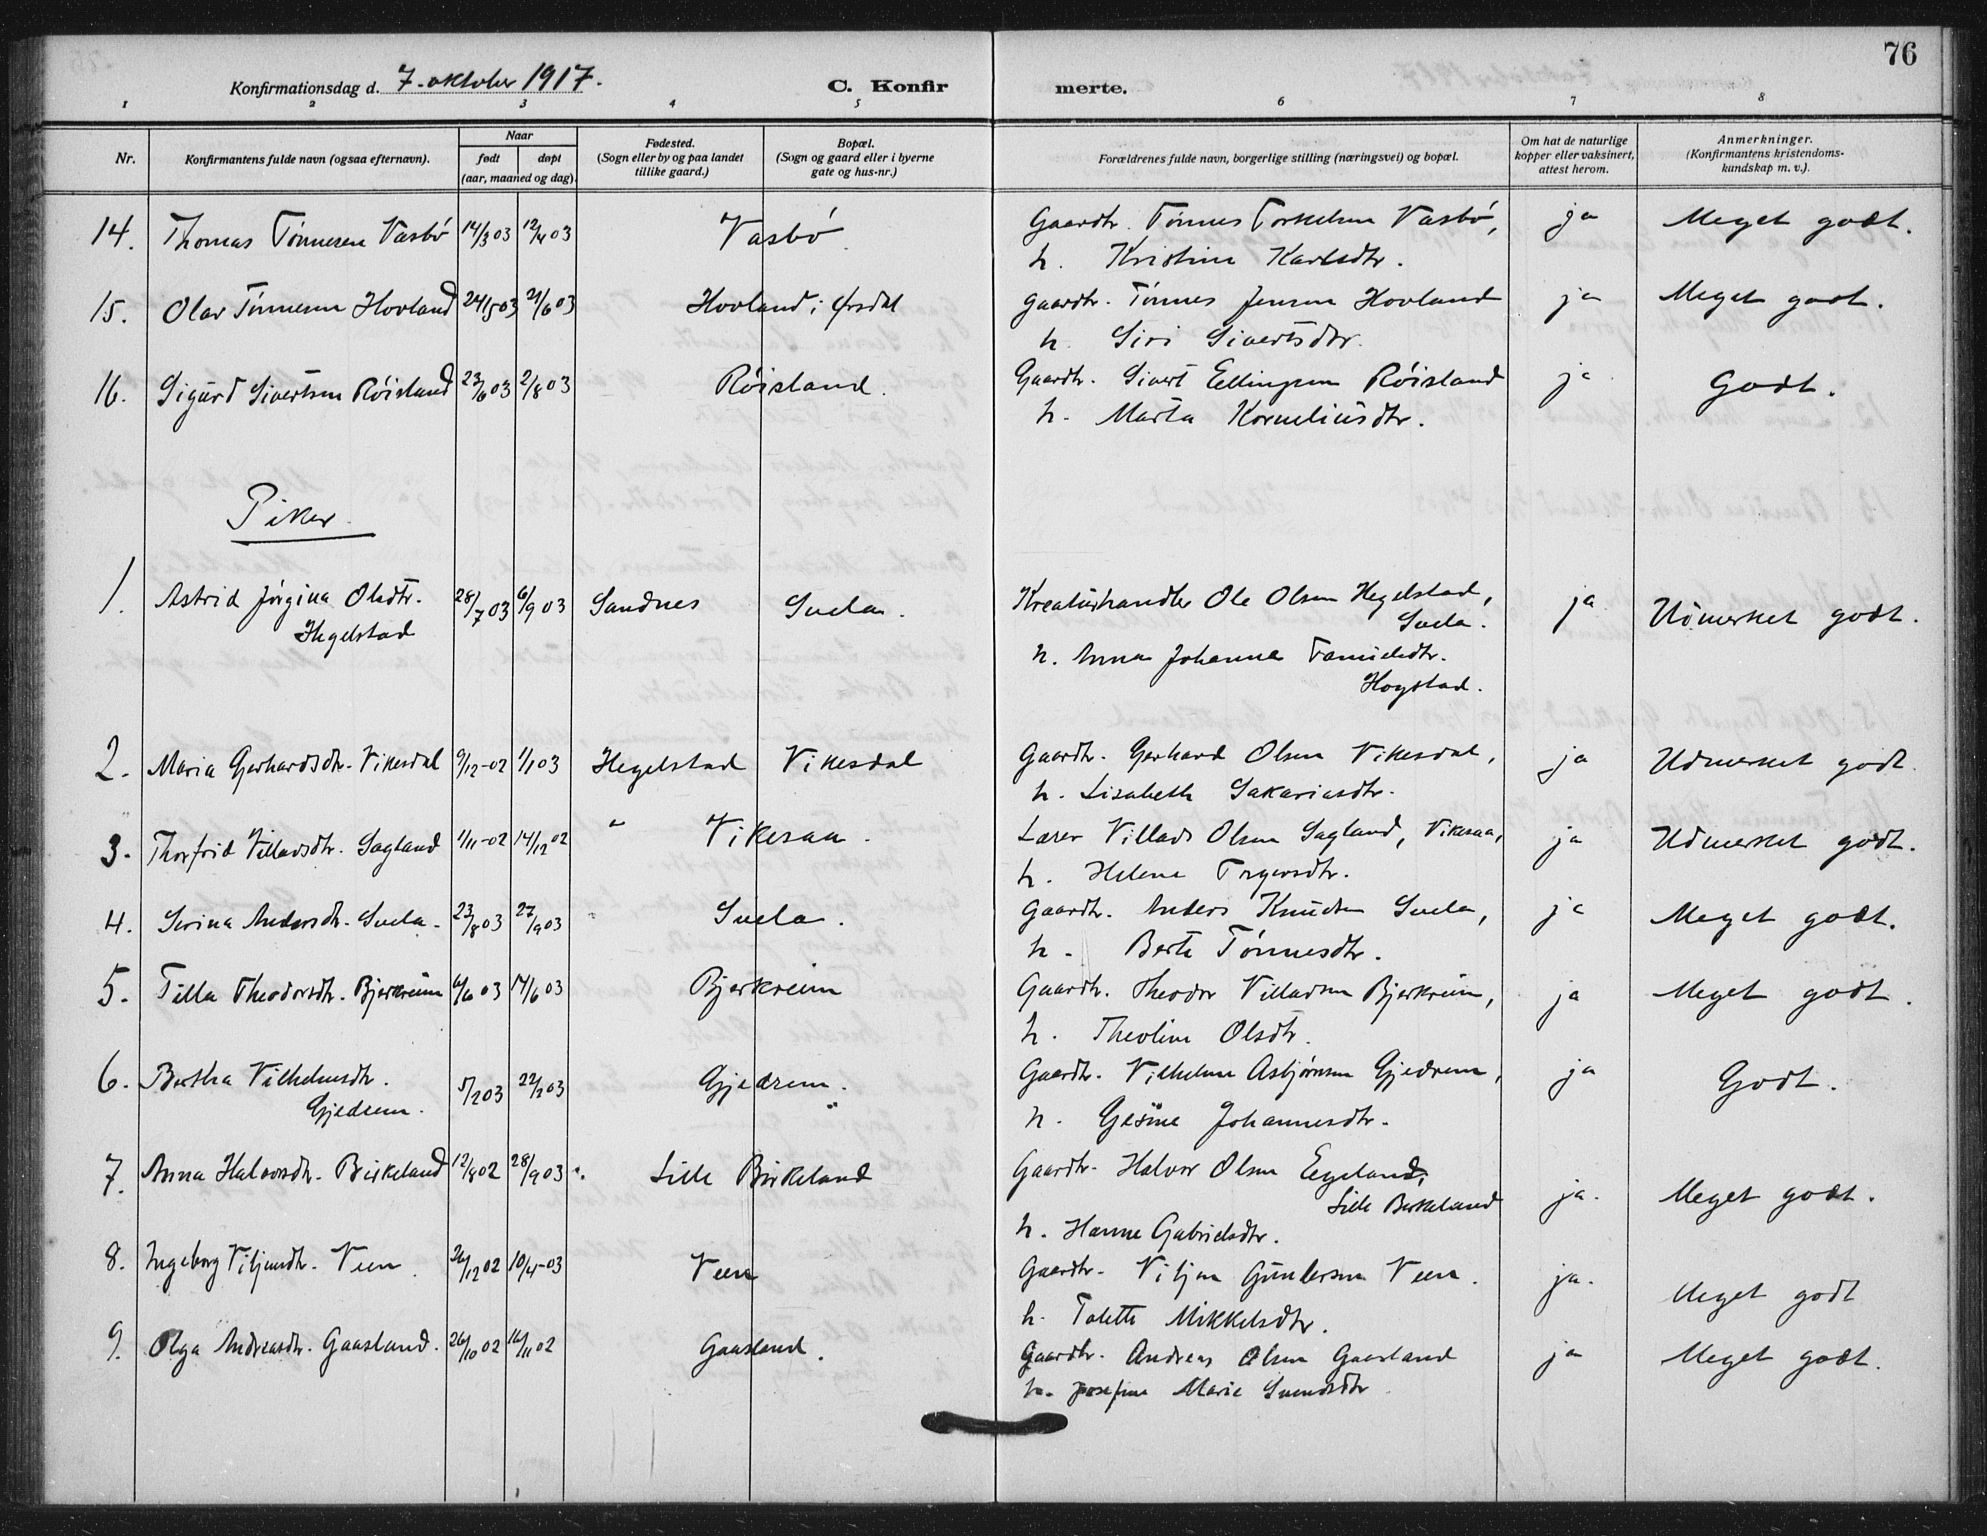 76
Konfirmationsdag d. 7. oktober 1917. C. Konfirmerte.
1 2 3 4 5 6 7 8
Nr. Konfirmantens fulde navn (ogsaa efternavn). Naar født døpt (aar, maaned og dag). Fødested. (Sogn eller by og paa landet tillike gaard.) Bopæl. (Sogn og gaard eller i byerne gate og hus-nr.) Forældrenes fulde navn, borgerlige stilling (næringsvei) og bopæl. Om hat de naturlige kopper eller vaksinert, attest herom. Anmerkninger. (Konfirmantens kristendoms-kundskap m. v.).
14. Thomas Tønnesen Vasbø 14/3 03 12/4 03 Vasbø. Gaardbr. Tønnes Torkelsen Vasbø, ja Meget godt.
h. Kristine Karlsdtr.
15. Olav Tønnesen Hovland 24/5 03 21/6 03 Hovland i Ørsdal Gaardbr. Tønnes Jensen Hovland ja Meget godt.
h. Siri Sivertsdtr.
16. Sigurd Sivertsen Røisland 23/6 03 2/8 03 Røisland. Gaardbr. Sivert Ellingsen Røisland ja Godt.
h. Marta Korneliusdtr.
Piker
1. Astrid Jørgina Olsdtr. 28/7 03 6/9 03 Sandnes Svela. Kreaturhandler Ole Olsen Hegelstad, ja Udmerket godt.
Hegelstad Svela.
h. Anna Johanne Danielsdtr.
Hogstad.
2. Maria Gerhardsdtr. Vikesdal 9/12-02 1/1 03 Hegelstad Vikesdal Gaardbr. Gerhard Olsen Vikesdal, ja Udmerket godt
h. Lisabeth Sakariasdtr.
3. Thorfrid Villadsdtr. Sagland 1/11-02 14/12 02 " Vikesaa. Lærer Villads Olsen Sagland, Vikesaa, ja Udmerket godt.
h. Helene Trygersdtr.
4. Serina Andersdtr. Svela. 23/8 03 27/9 03 Svela. Gaardbr. Anders Knudsen Svela, ja Meget godt.
h. Berte Tønnesdtr.
5. Tilla Theodorsdtr. Bjerkreim 6/6 03 14/6 03 Bjerkreim Gaardbr. Theodor Villadsen Bjerkreim, ja Meget godt.
h. Theoline Olsdtr.
6. Bertha Vilhelmsdtr. 5/2 03 22/2 03 Gjedrem. Gaardbr. Vilhelm Asbjørnsen Gjedrem, ja Godt.
Gjedrem. h. Gesine Johannesdtr.
7. Anna Halvorsdtr. Birkeland 12/8 02 28/9 03 Lille Birkeland Gaardbr. Halvor Olsen Eegeland, ja. Meget godt.
Lille Birkeland
h. Hanne Gabrielsdtr.
8. Ingeborg Viljumdtr. Veen 26/12 02 10/4-03 Veen Gaardbr. Viljum Gundersen Veen. ja. Meget godt
h. Tolette Mikkelsdtr.
9. Olga Andreasdtr. Gaasland. 26/10 02 16/11 02 Gaasland. Gaardbr. Andreas Olsen Gaasland ja Meget godt.
h. Josefine Marie Svendsdtr